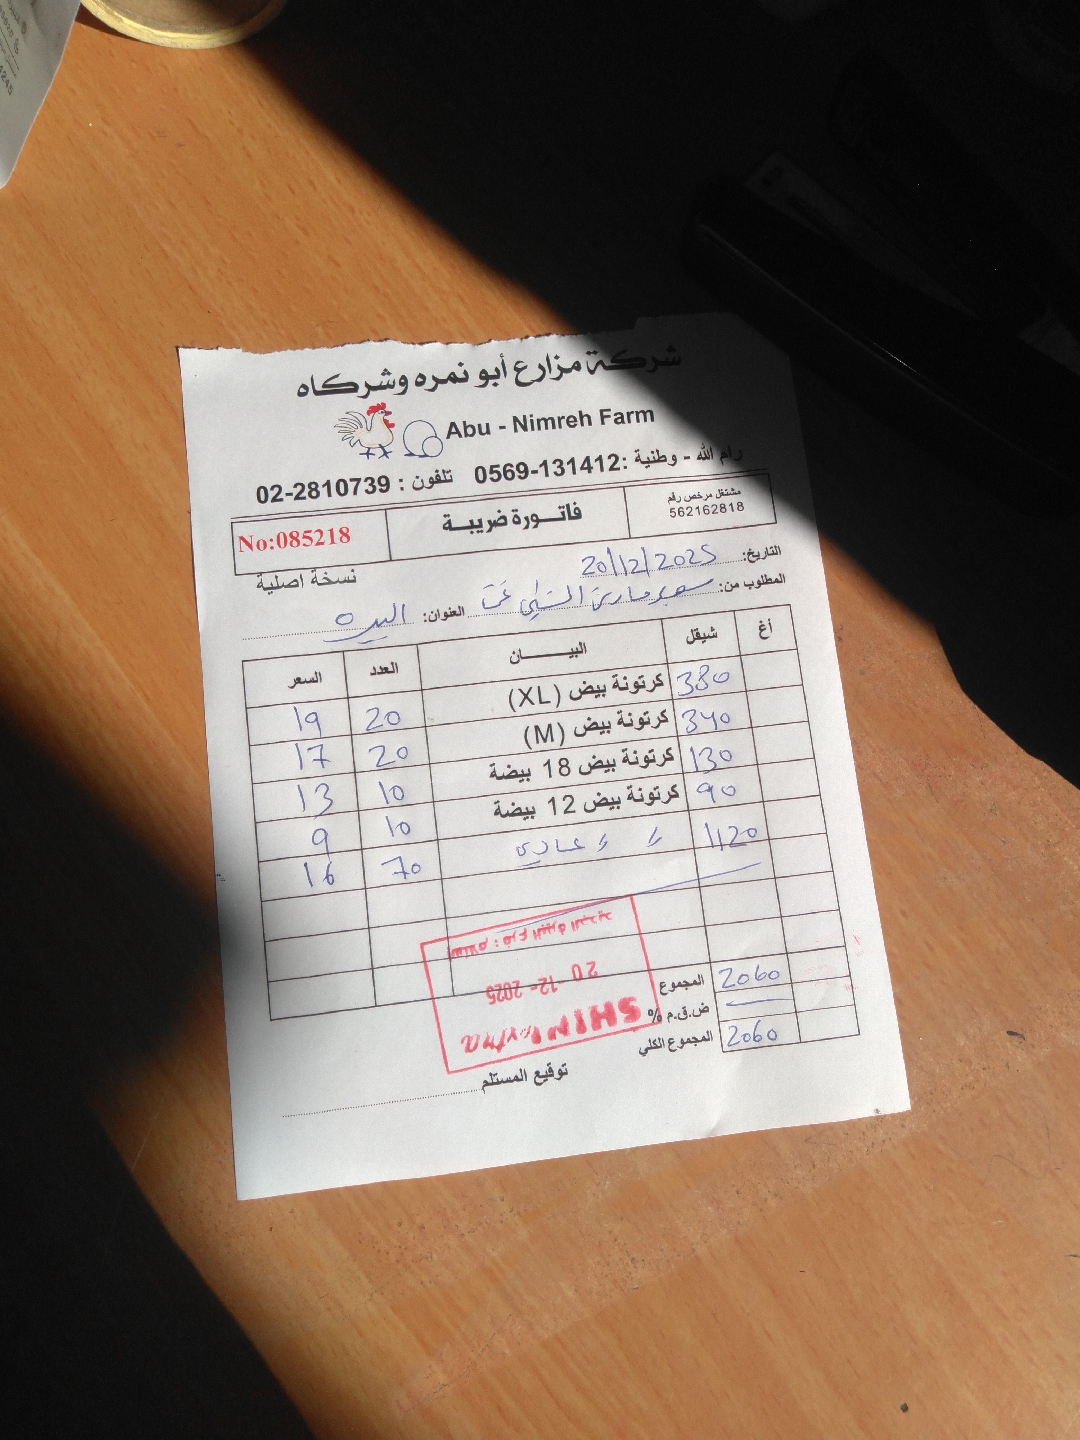 شركة مزارع أبو نمره وشركاه
Abu - Nimreh Farm
رام الله - وطنية : 0569-131412 تلفون : 02-2810739
مشتغل مرخص رقم
562162818
فاتورة ضريبة
No:085218
نسخة اصلية
التاريخ: 20/12/2025
المطلوب من: سوبرماركت الشني العنوان: البيره
أغ شيقل البيــــــان العدد السعر
380 كرتونة بيض (XL) 20 19
340 كرتونة بيض (M) 20 17
130 كرتونة بيض 18 بيضة 10 13
90 كرتونة بيض 12 بيضة 10 9
1120 〃 〃 عادي 70 16
المجموع 2060
ض.ق.م %
المجموع الكلي 2060
استلام : فرع البيرة الجديد
20 -12- 2025
SHINI
توقيع المستلم